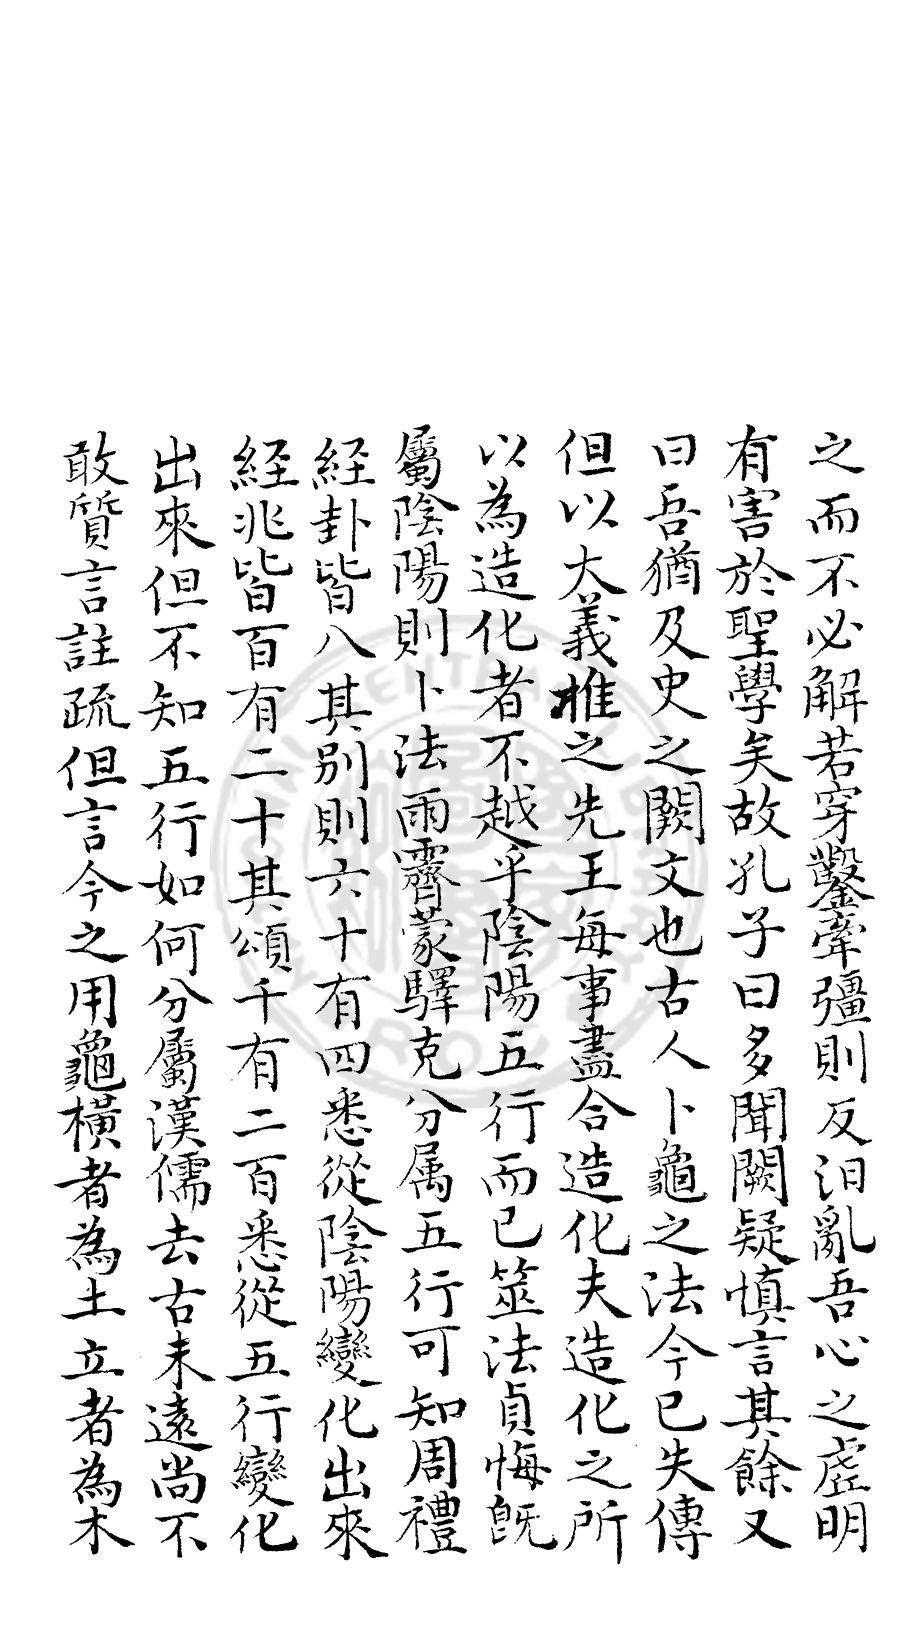 之而不必解若穿鑿牽彊則反汨亂吾心之虛明
有害於聖學矣故孔子曰多聞闕疑慎言其餘又
曰吾猶及史之闕文也古人卜龜之法今已失傳
但以大義推之先王每事盡合造化夫造化之所
以為造化者不越乎陰陽五行而已筮法貞悔既
屬陰陽則卜法雨霽蒙驛克分属五行可知周禮
経卦皆八其別則六十有四悉從陰陽變化出來
経兆皆百有二十其頌千有二百悉從五行變化
出來但不知五行如何分屬漢儒去古未遠尚不
敢質言註疏但言今之用龜橫者為土立者為木